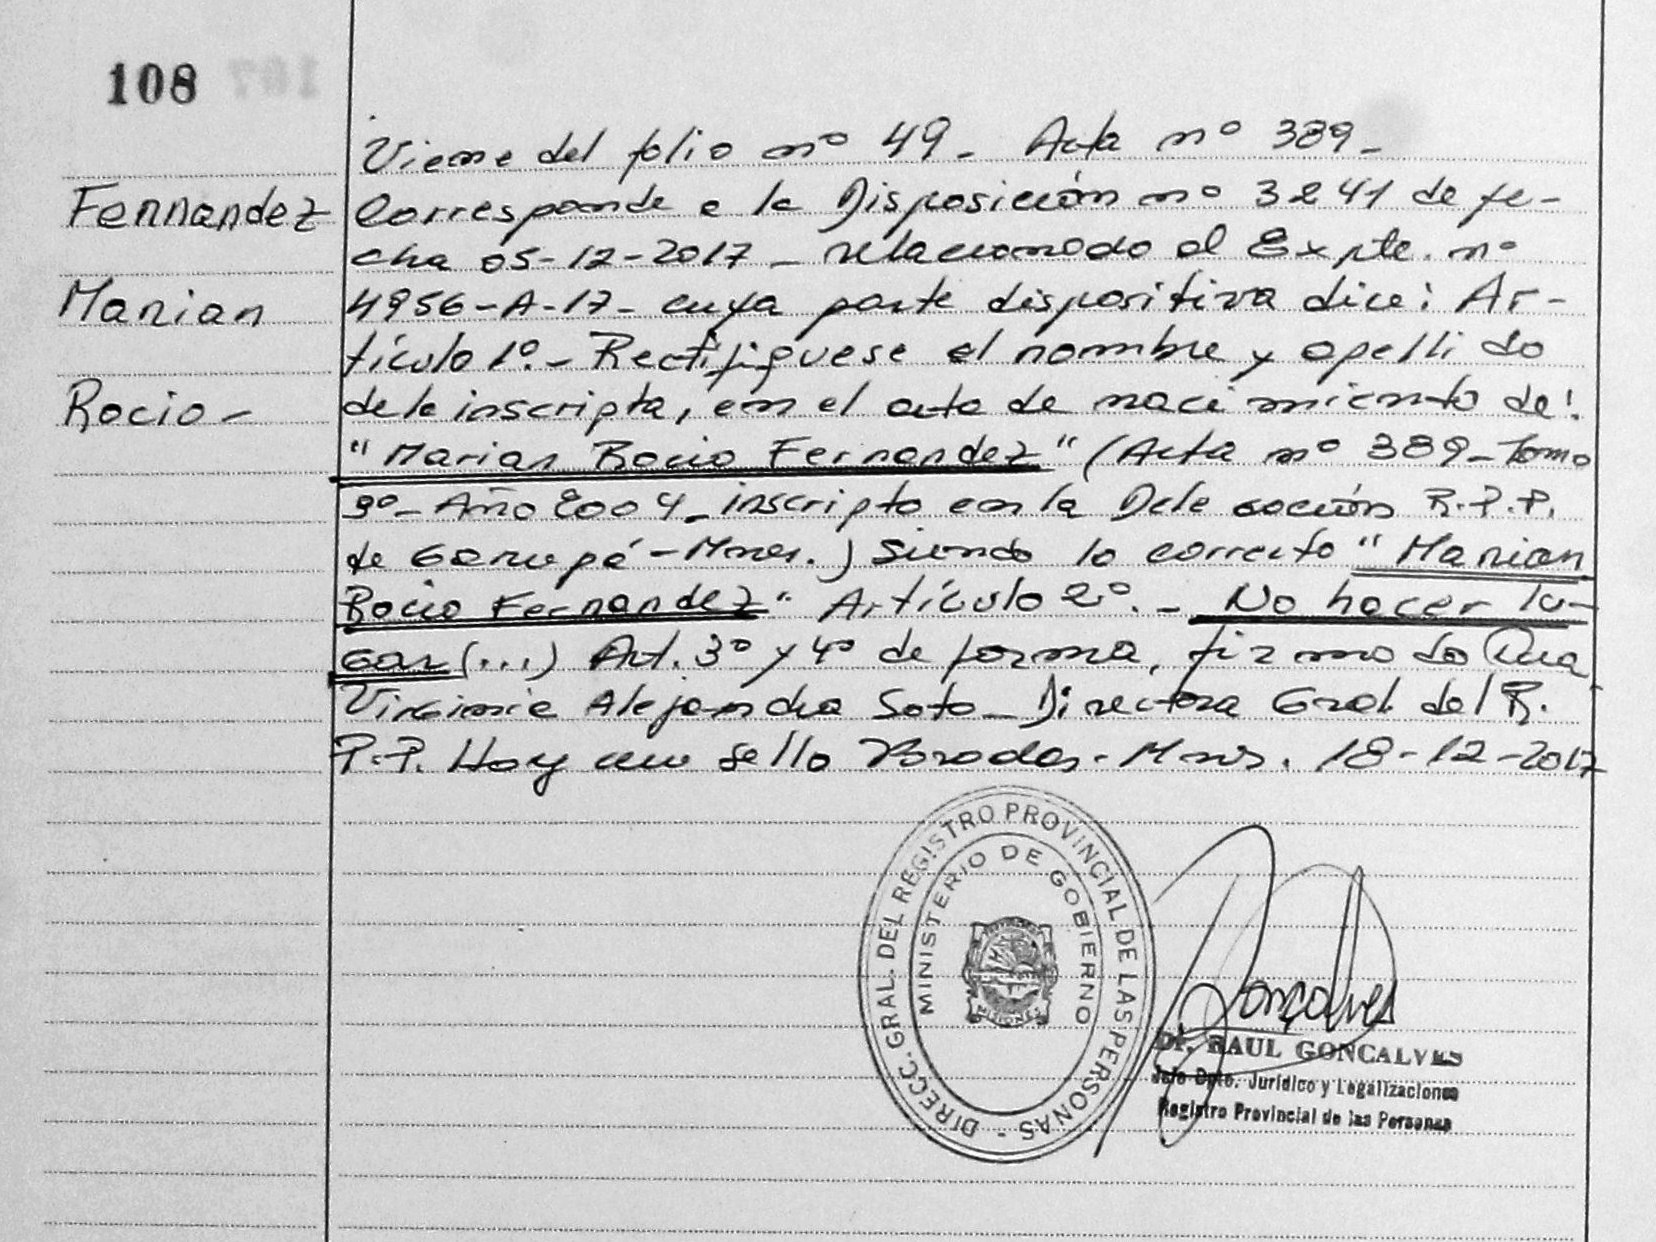 108
Viene del folio nº 49 - Acta nº 389 -
Fernandez
Corresponde a la Disposición nº 3241 de fe-
cha 05-12-2017 - relacionado al Expte. nº
Marian
4956-A-17- cuya parte dispositiva dice: Ar-
tículo 1º.- Rectifiquese el nombre y apellido
Rocio -
de la inscripta, en el acta de nacimiento de:
"Marian Rocio Fernandez" (Acta nº 389 - Tomo
3º - Año 2004 - inscripto en la Delegación R.P.P.
de Garupá - Mnes.) Siendo lo correcto "Marian
Rocio Fernandez" Artículo 2º. - No hacer lu-
gar (...) Art. 3º y 4º de forma, firmado
Virginia Alejandra Soto - Directora Gral. del R.
P.P. Hoy un sello Posadas - Mnes. 18-12-2017
DIRECC. GRAL. DEL REGISTRO PROVINCIAL DE LAS PERSONAS -
MINISTERIO DE GOBIERNO
MISIONES
Goncalves
Dr. RAUL GONCALVES
Jefe Dpto. Jurídico y Legalizaciones
Registro Provincial de las Personas